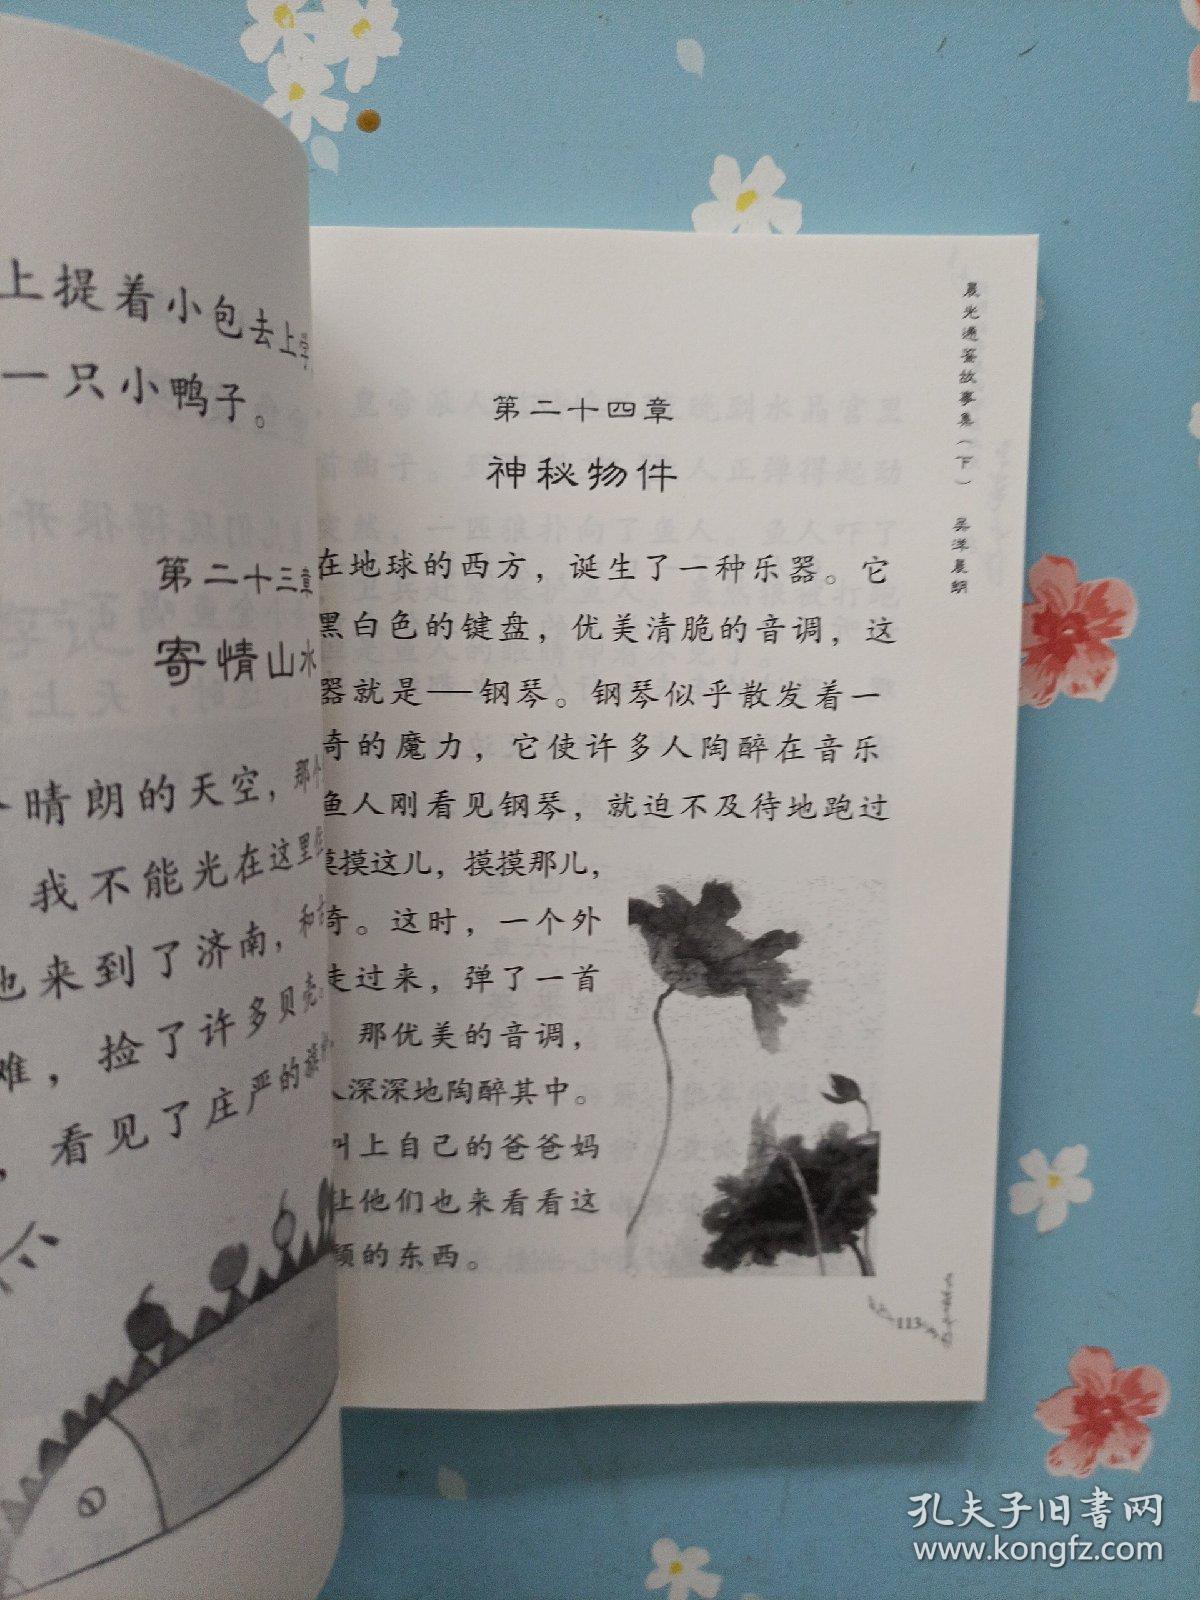 上提着小包去上
一只小鸭子。
第二十三章
寄情山水
晴朗的天空，那个
我不能光在这里
也来到了济南，和
难，捡了许多贝壳
，看见了庄严的
第二十四章
神秘物件
在地球的西方，诞生了一种乐器。它
黑白色的键盘，优美清脆的音调，这
器就是——钢琴。钢琴似乎散发着一
奇的魔力，它使许多人陶醉在音乐
鱼人刚看见钢琴，就迫不及待地跑过
摸摸这儿，摸摸那儿，
奇。这时，一个外
走过来，弹了一首
那优美的音调，
人深深地陶醉其中。
叫上自己的爸爸妈
让他们也来看看这
颖的东西。
晨光通鉴故事集（下） 吴洋晨朗
113
孔夫子旧书网
www.kongfz.com